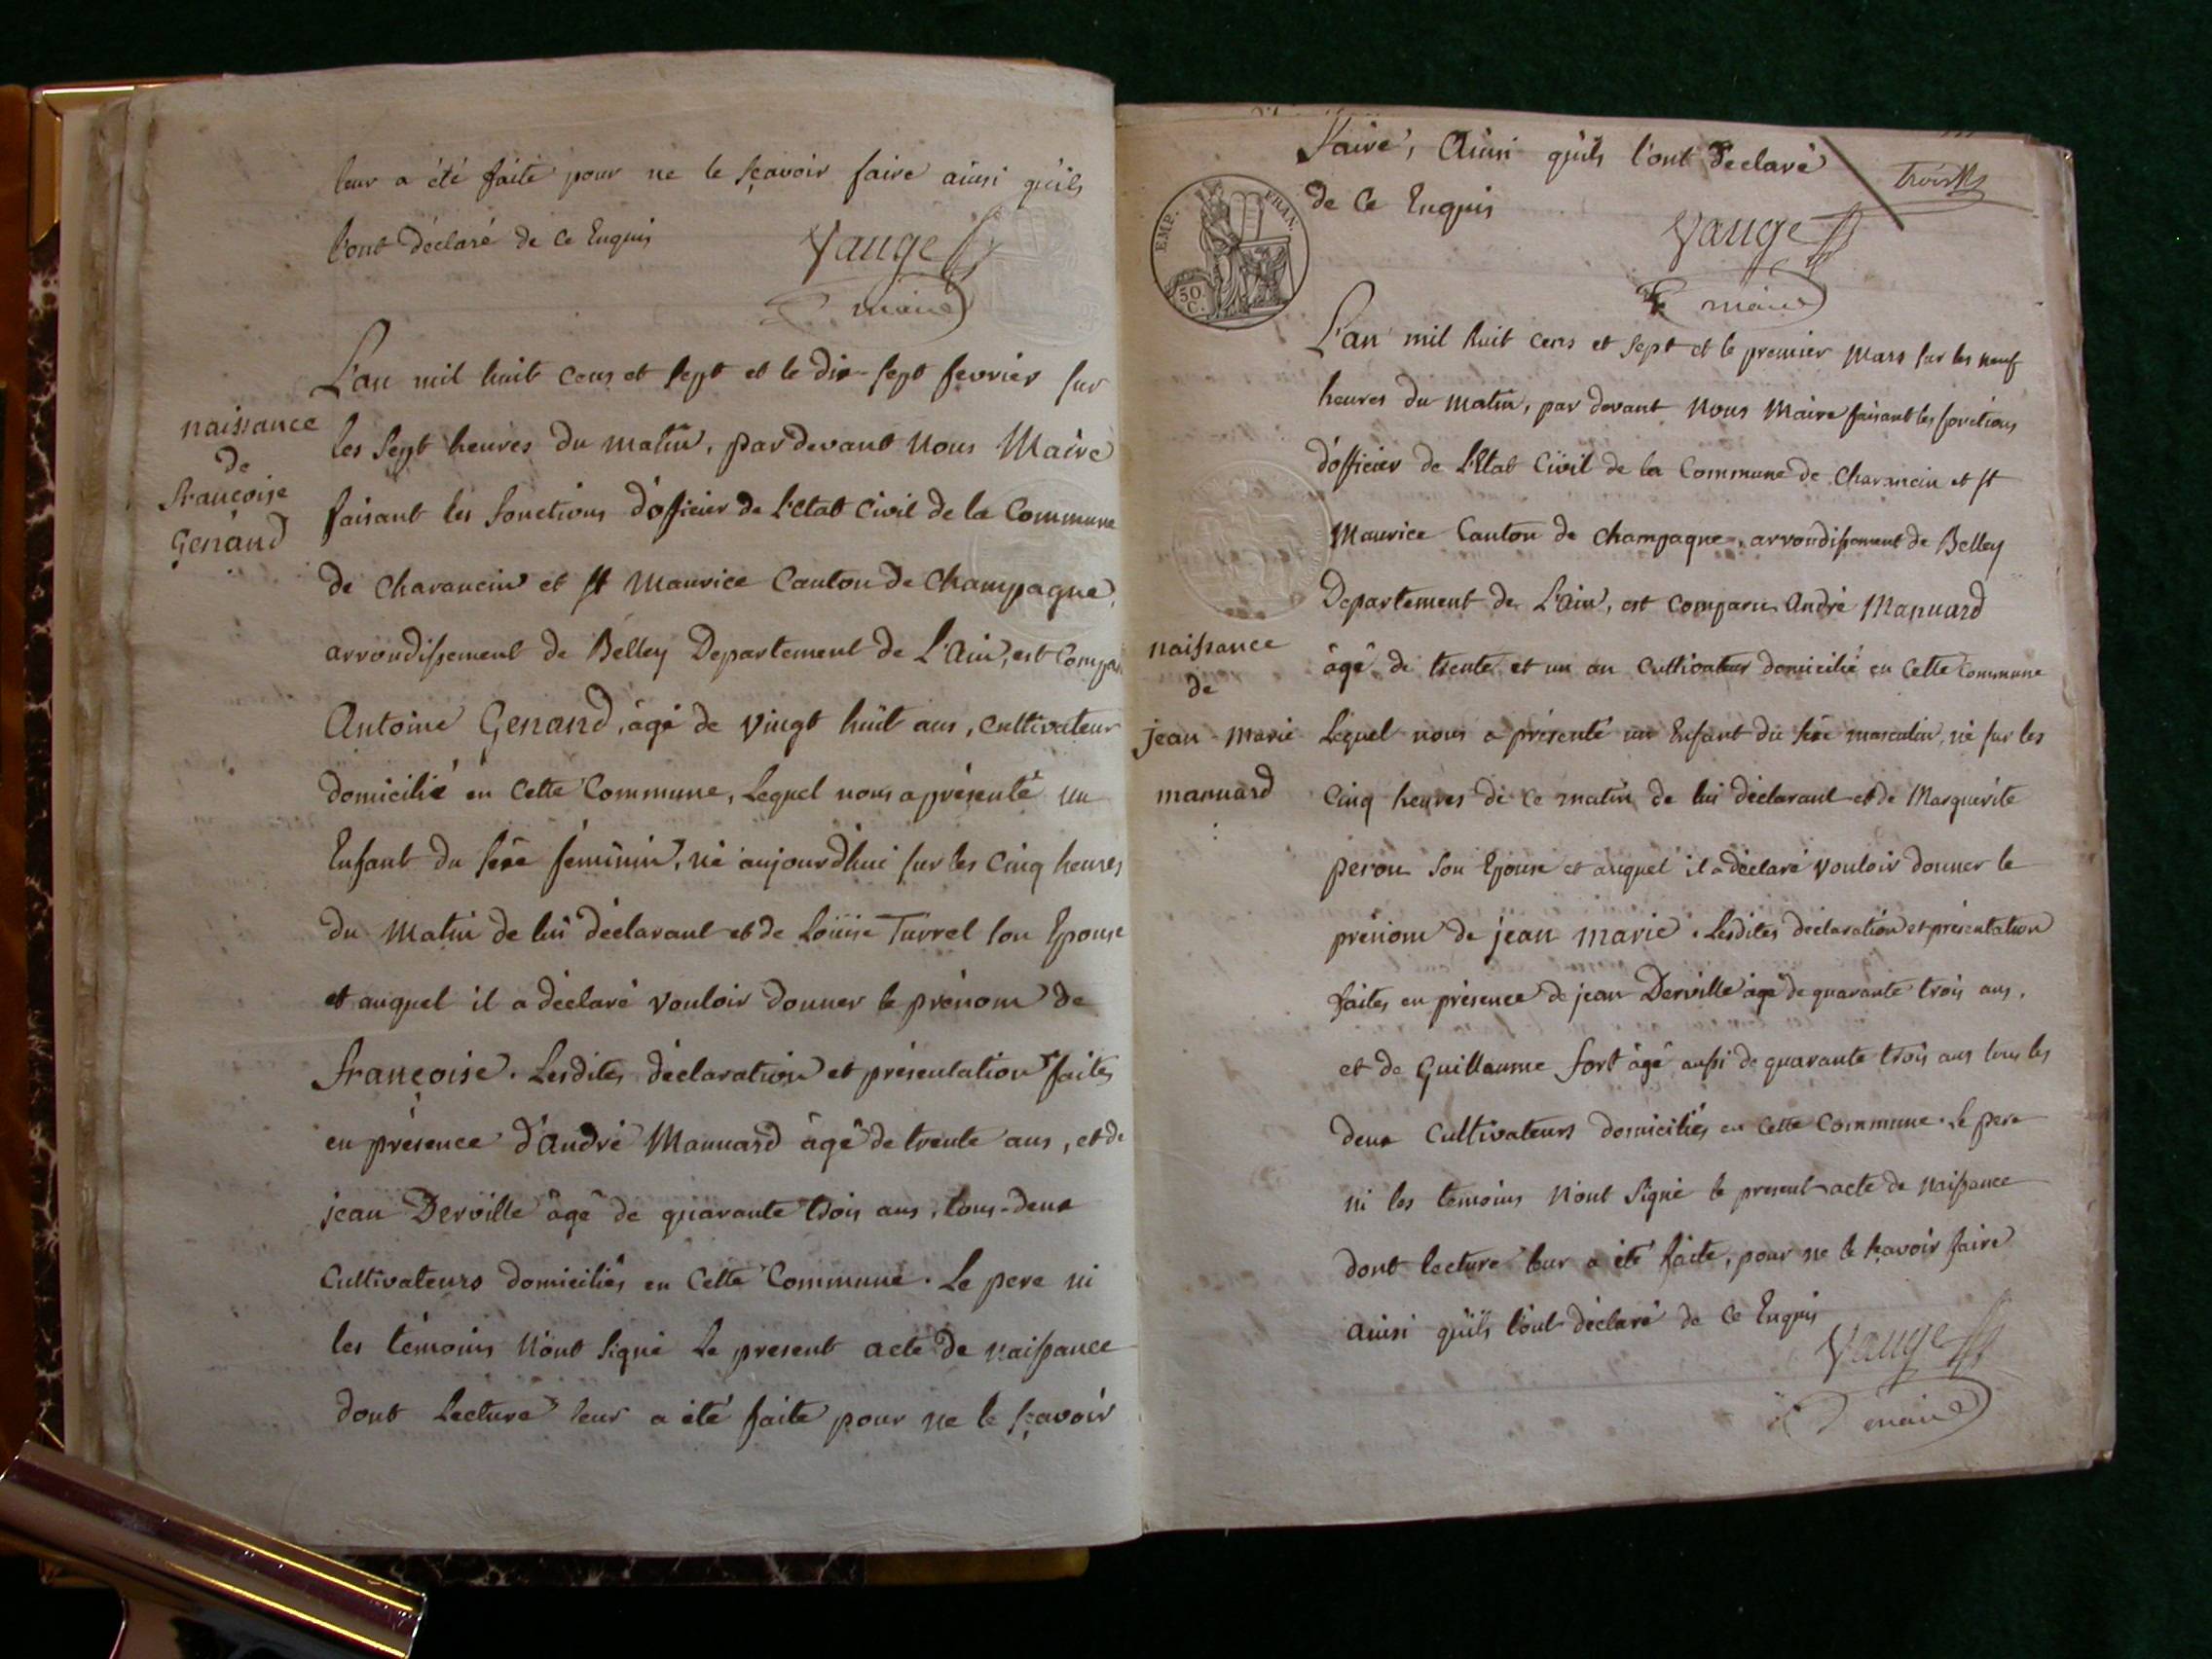 leur a été faite pour ne le sçavoir faire ainsi qu'ils
l'ont déclaré de ce Enquis
Vauge
maire
naissance
de
françoise
Genand
L'an mil huit cens et sept et le dix-sept fevrier sur
les sept heures du matin, pardevant Nous Maire
faisant les fonctions d'officier de L'etat Civil de la Commune
de Charancin et St Maurice Canton de Champagne,
arrondissement de Belley Departement de L'Ain, est Compar
Antoine Genand, âgé de vingt huit ans, cultivateur
domicilié en Cette Commune, Lequel nous a présenté un
Enfant du sexe féminin, né aujourd'hui sur les cinq heures
du Matin de lui déclarant et de Louise Turrel son Epouse
et auquel il a déclaré vouloir donner le prénom de
françoise. Lesdites déclaration et présentation faites
en présence d'andré Mannard âgé de trente ans, et de
jean Derville âgé de quarante trois ans, tous-deux
Cultivateurs domiciliés en Cette Commune. Le pere ni
les témoins N'ont signé Le present acte de naissance
dont Lecture leur a été faite pour ne le sçavoir
faire, Ainsi qu'ils l'ont déclaré
de ce Enquis
Vauge
maire
EMP. FRAN.
50.
C.
naissance
de
jean-marie
mannard
L'an mil huit cens et sept et le premier mars sur les neuf
heures du matin, par devant Nous Maire faisant les fonctions
d'officier de L'Etat Civil de la Commune de Charancin et St
Maurice Canton de Champagne, arrondissement de Belley
Departement de L'Ain, est Comparu André Mannard
âgé de trente et un an Cultivateur domicilié en Cette Commune
Lequel nous a présenté un Enfant du sexe masculin, né sur les
Cinq heures de ce matin de lui déclarant et de Marguerite
perou son Epouse et auquel il a déclaré vouloir donner le
prénom de jean marie. Lesdites déclaration et présentation
faites en présence de jean Derville âgé de quarante trois ans,
et de Guillaume fort âgé aussi de quarante trois ans tous les
deux Cultivateurs domiciliés en Cette Commune. Le pere
ni les temoins N'ont signé le present acte de Naissance
dont lecture leur a été faite, pour ne le sçavoir faire
ainsi qu'ils l'ont déclaré de ce Enquis
Vauge
maire